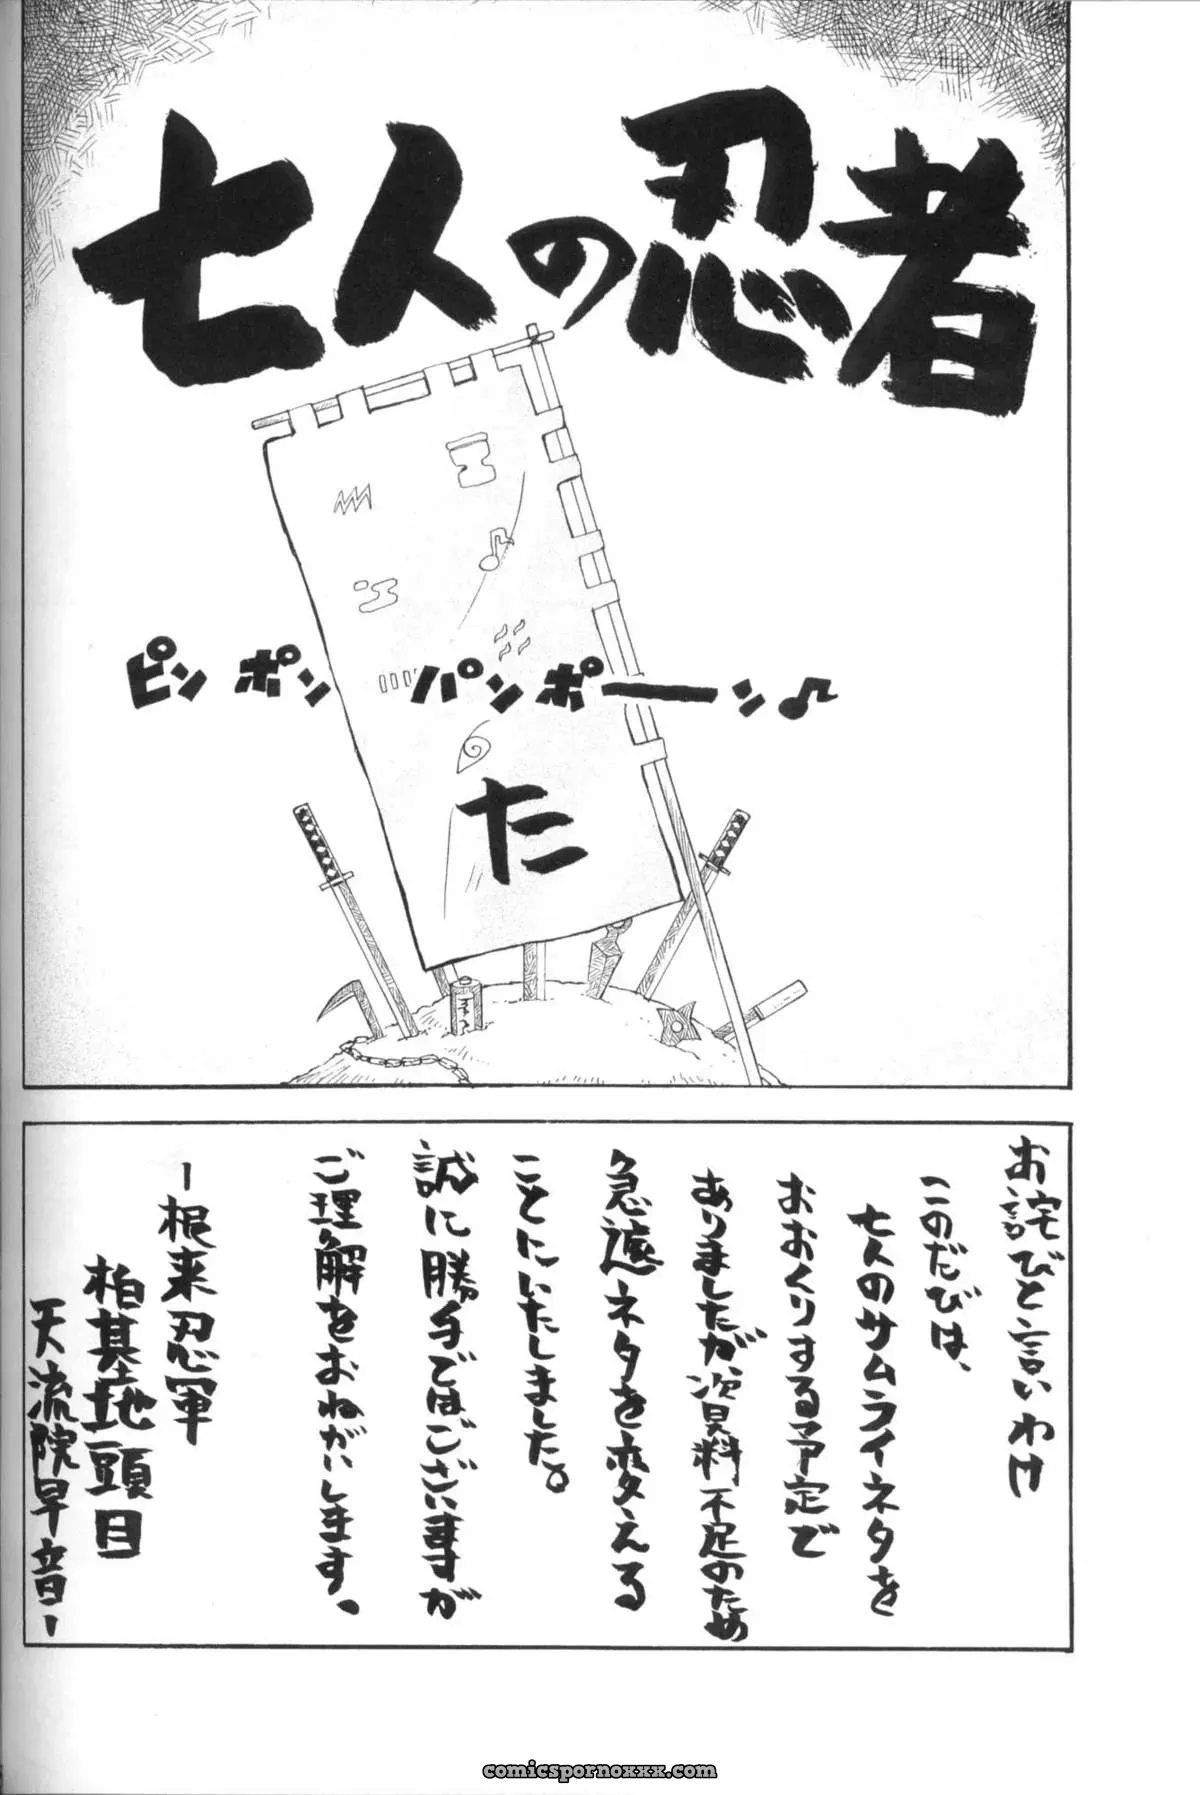 七人の忍者
ピンポンパンポーン♪
た
お詫びと言いわけ
このたびは、
七人のサムライネタを
おおくりする予定で
ありましたが、資料不足のため
急遽ネタを変える
ことにいたしました。
誠に勝手ではございますが
ご理解をおねがいします。
ー根来忍軍
柏基地頭目
天流院早音ー
comicspornoxxx.com